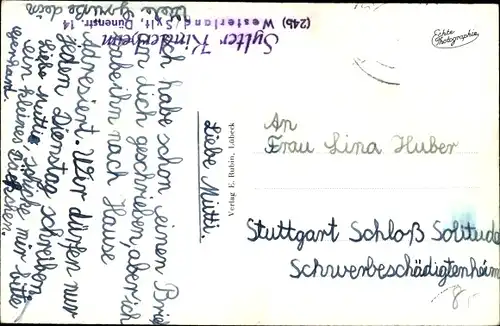 Sylter Kinderheim
(24b) Westerland / Sylt, Dünenstr. 14
Echte
Photographie
Liebe Mutti.
Ich habe schon einen Brief
an dich geschrieben, aber ich
habe ihn nach Hause
adresiert. Wir dürfen nur
jeden Dienstag schreiben.
Liebe Mutti schicke mir bitte
ein kleines
Viele Grüße dein
Verlag E. Rubin, Lübeck
An
Frau Lina Huber
Stuttgart Schloß Solitude
Schwerbeschädigtenheim